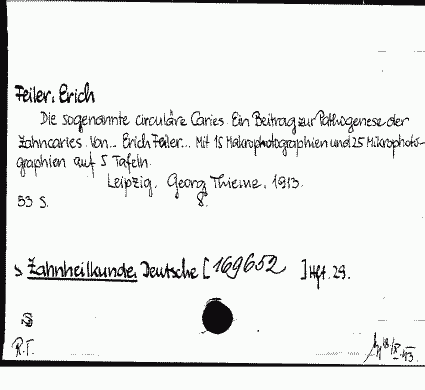 Feiler, Erich
Die sogenannte circuläre Caries. Ein Beitrag zur Pathogenese der
Zahncaries. Von... Erich Feiler... Mit 15 Makrophotographien und 25 Mikrophoto-
graphien auf 5 Tafeln.
Leipzig, Georg Thieme, 1913.
53 S. 8.
Zahnheilkunde, Deutsche [169652] Hft. 29.
R.T.